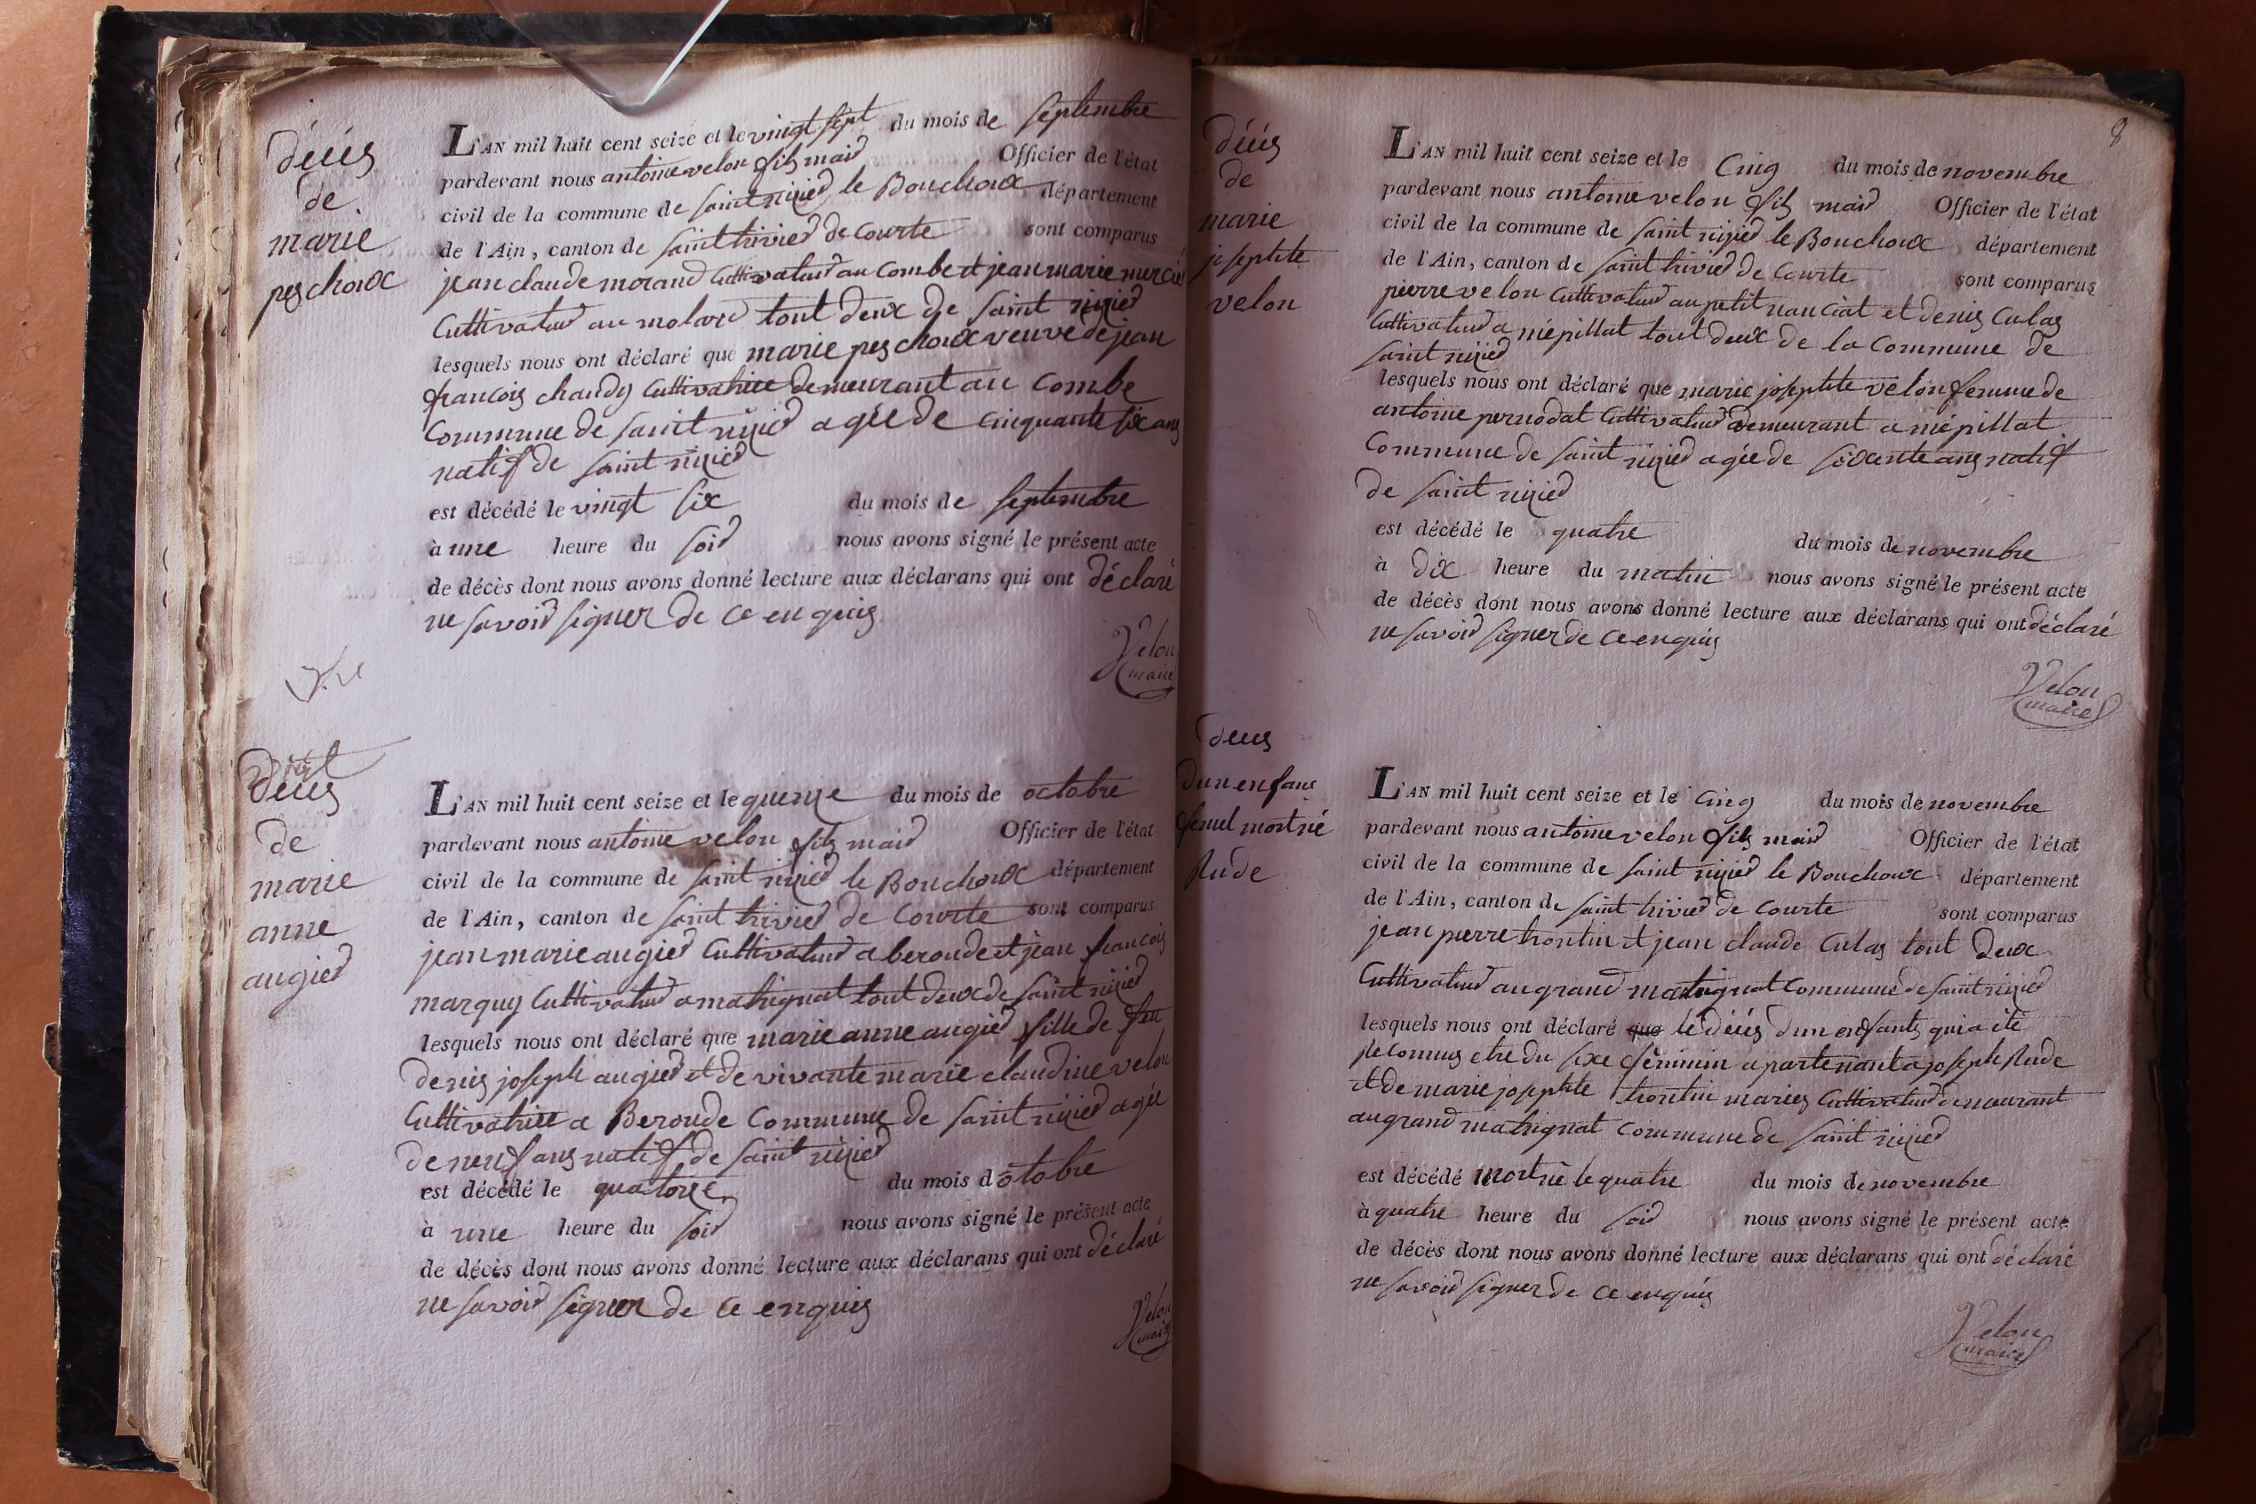 décès
de
marie
peschoux
L'AN mil huit cent seize et le vingt sept du mois de septembre
pardevant nous antoine velon fils maire Officier de l'état
civil de la commune de saint nizier le Bouchoux département
de l'Ain, canton de saint trivier de Courte sont comparus
jean claude morand Cultivateur au Combe et jean marie mercié
Cultivateur au molard tout deux de saint nizier
lesquels nous ont déclaré que marie peschoux veuve de jean
francois chaudy Cultivatrice demeurant au Combe
Commune de saint nizier agée de cinquante six ans
natif de saint nizier
est décédé le vingt six du mois de septembre
à une heure du soir nous avons signé le présent acte
de décès dont nous avons donné lecture aux déclarans qui ont déclaré
ne savoir signer de ce enquis
Velon
maire
décès
de
marie
anne
augier
L'AN mil huit cent seize et le quenze du mois de octobre
pardevant nous antoine velon fils maire Officier de l'état
civil de la commune de saint nizier le Bouchoux département
de l'Ain, canton de saint trivier de Courte sont comparus
jean marie augier Cultivateur a beroude et jean francois
marquis Cultivateur a matignat tout deux de saint nizier
lesquels nous ont déclaré que marie anne augier fille de feu
denis joseph augier et de vivante marie claudine velon
Cultivatrice a Beroude Commune de saint nizier agée
de neuf ans natif de saint nizier
est décédé le quatorze du mois d'otobre
à une heure du soir nous avons signé le présent acte
de décès dont nous avons donné lecture aux déclarans qui ont déclaré
ne savoir signer de ce enquis
Velon
maire
8
décès
de
marie
josephte
velon
L'AN mil huit cent seize et le Cinq du mois de novembre
pardevant nous antoine velon fils maire Officier de l'état
civil de la commune de saint nizier le Bouchoux département
de l'Ain, canton de saint trivier de Courte sont comparus
pierre velon Cultivateur au petit nanciat et denis Culas
Cultivateur a mépillat tout deux de la Commune de
saint nizier
lesquels nous ont déclaré que marie josephte velon femme de
antoine pernodat Cultivateur demeurant a mépillat
Commune de saint nizier agée de soixente ans natif
de saint nizier
est décédé le quatre du mois de novembre
à dix heure du matin nous avons signé le présent acte
de décès dont nous avons donné lecture aux déclarans qui ont déclaré
ne savoir signer de ce enquis
Velon
maire
décès
d'un enfans
femel mort né
Rude
L'AN mil huit cent seize et le Cinq du mois de novembre
pardevant nous antoine velon fils maire Officier de l'état
civil de la commune de saint nizier le Bouchoux département
de l'Ain, canton de saint trivier de Courte sont comparus
jean pierre trontin et jean claude Culas tout deux
Cultivateur au grand matignat Commune de saint nizier
lesquels nous ont déclaré que le décès d'un enfants qui a été
reconnus etre du sexe féminin apartenant a joseph Rude
et de marie josephte trontin mariés Cultivateur demeurant
au grand matignat Commune de saint nizier
est décédé mort né le quatre du mois de novembre
à quatre heure du soir nous avons signé le présent acte
de décès dont nous avons donné lecture aux déclarans qui ont déclaré
ne savoir signer de ce enquis
Velon
maire